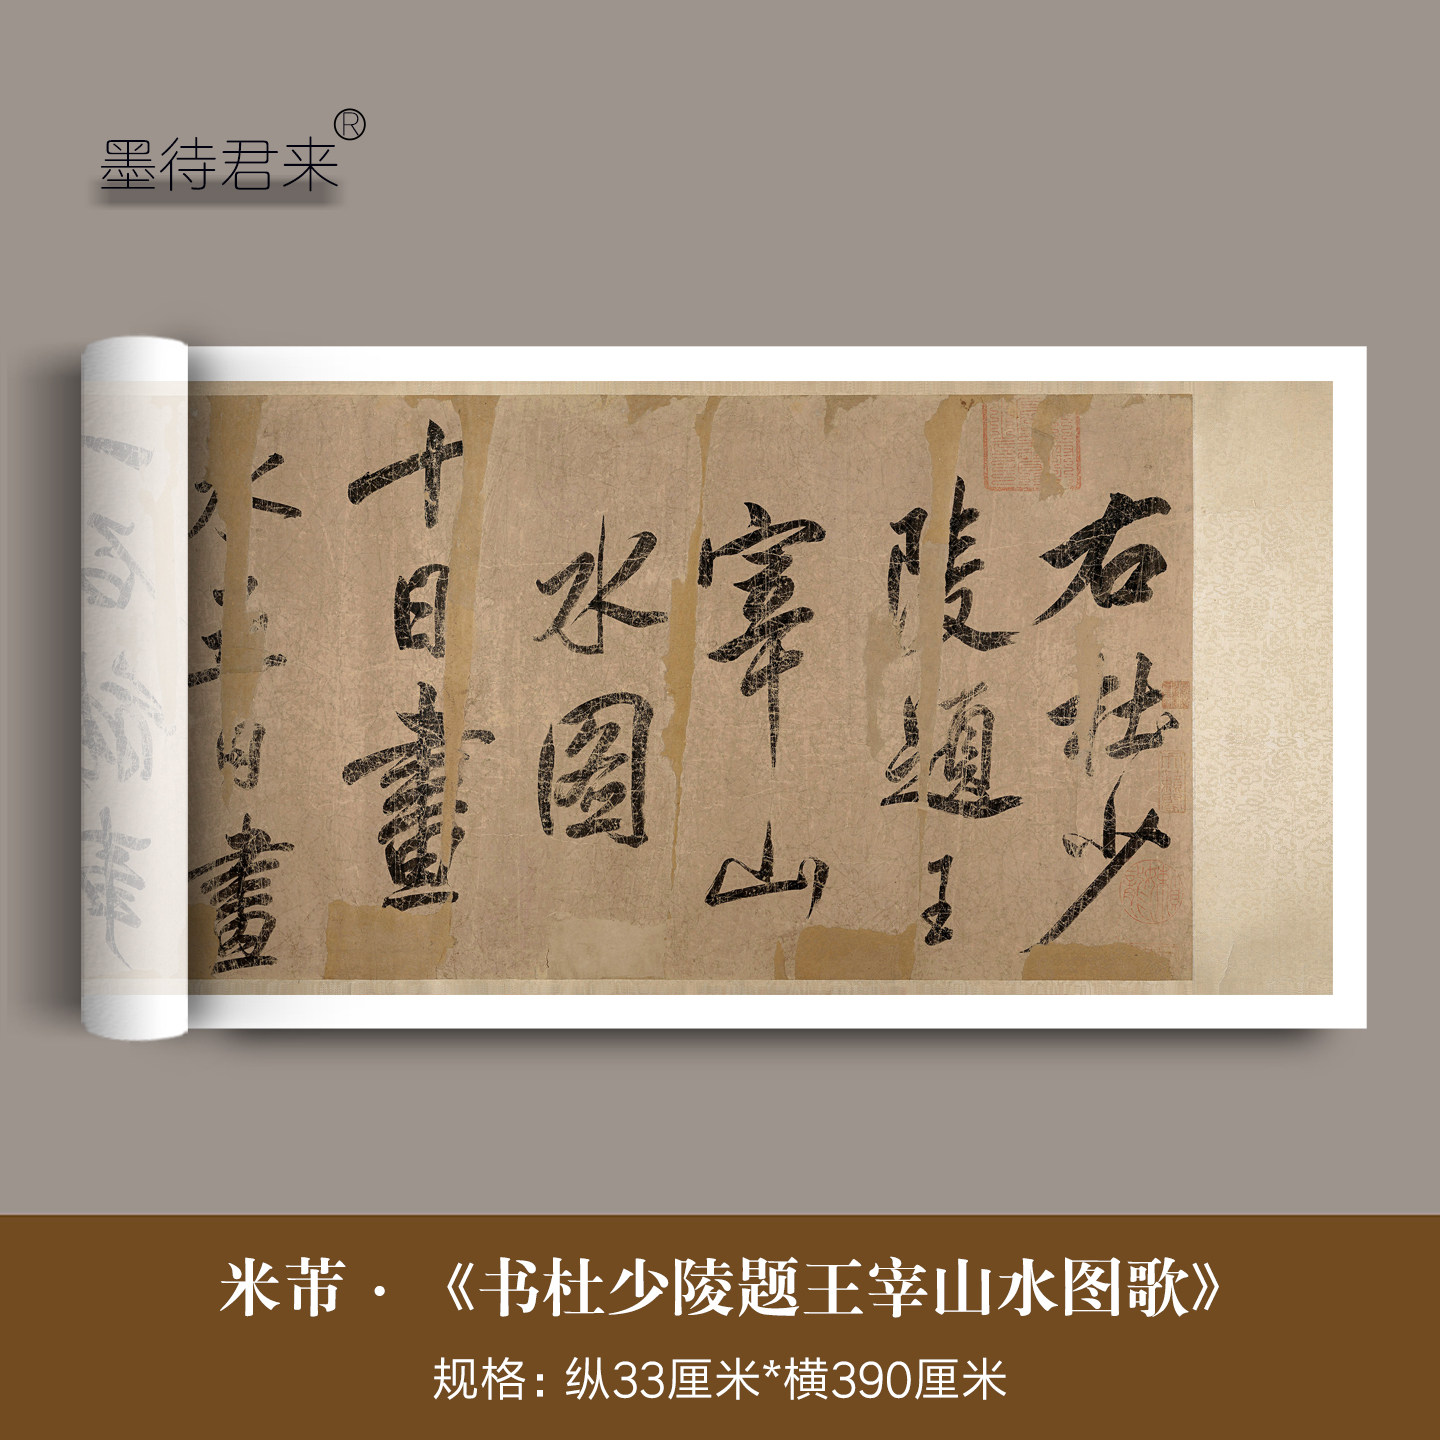 墨待君来®
右杜少
陵题王
宰山
水图
十日畫
水五日畫
米芾·《书杜少陵题王宰山水图歌》
规格：纵33厘米*横390厘米